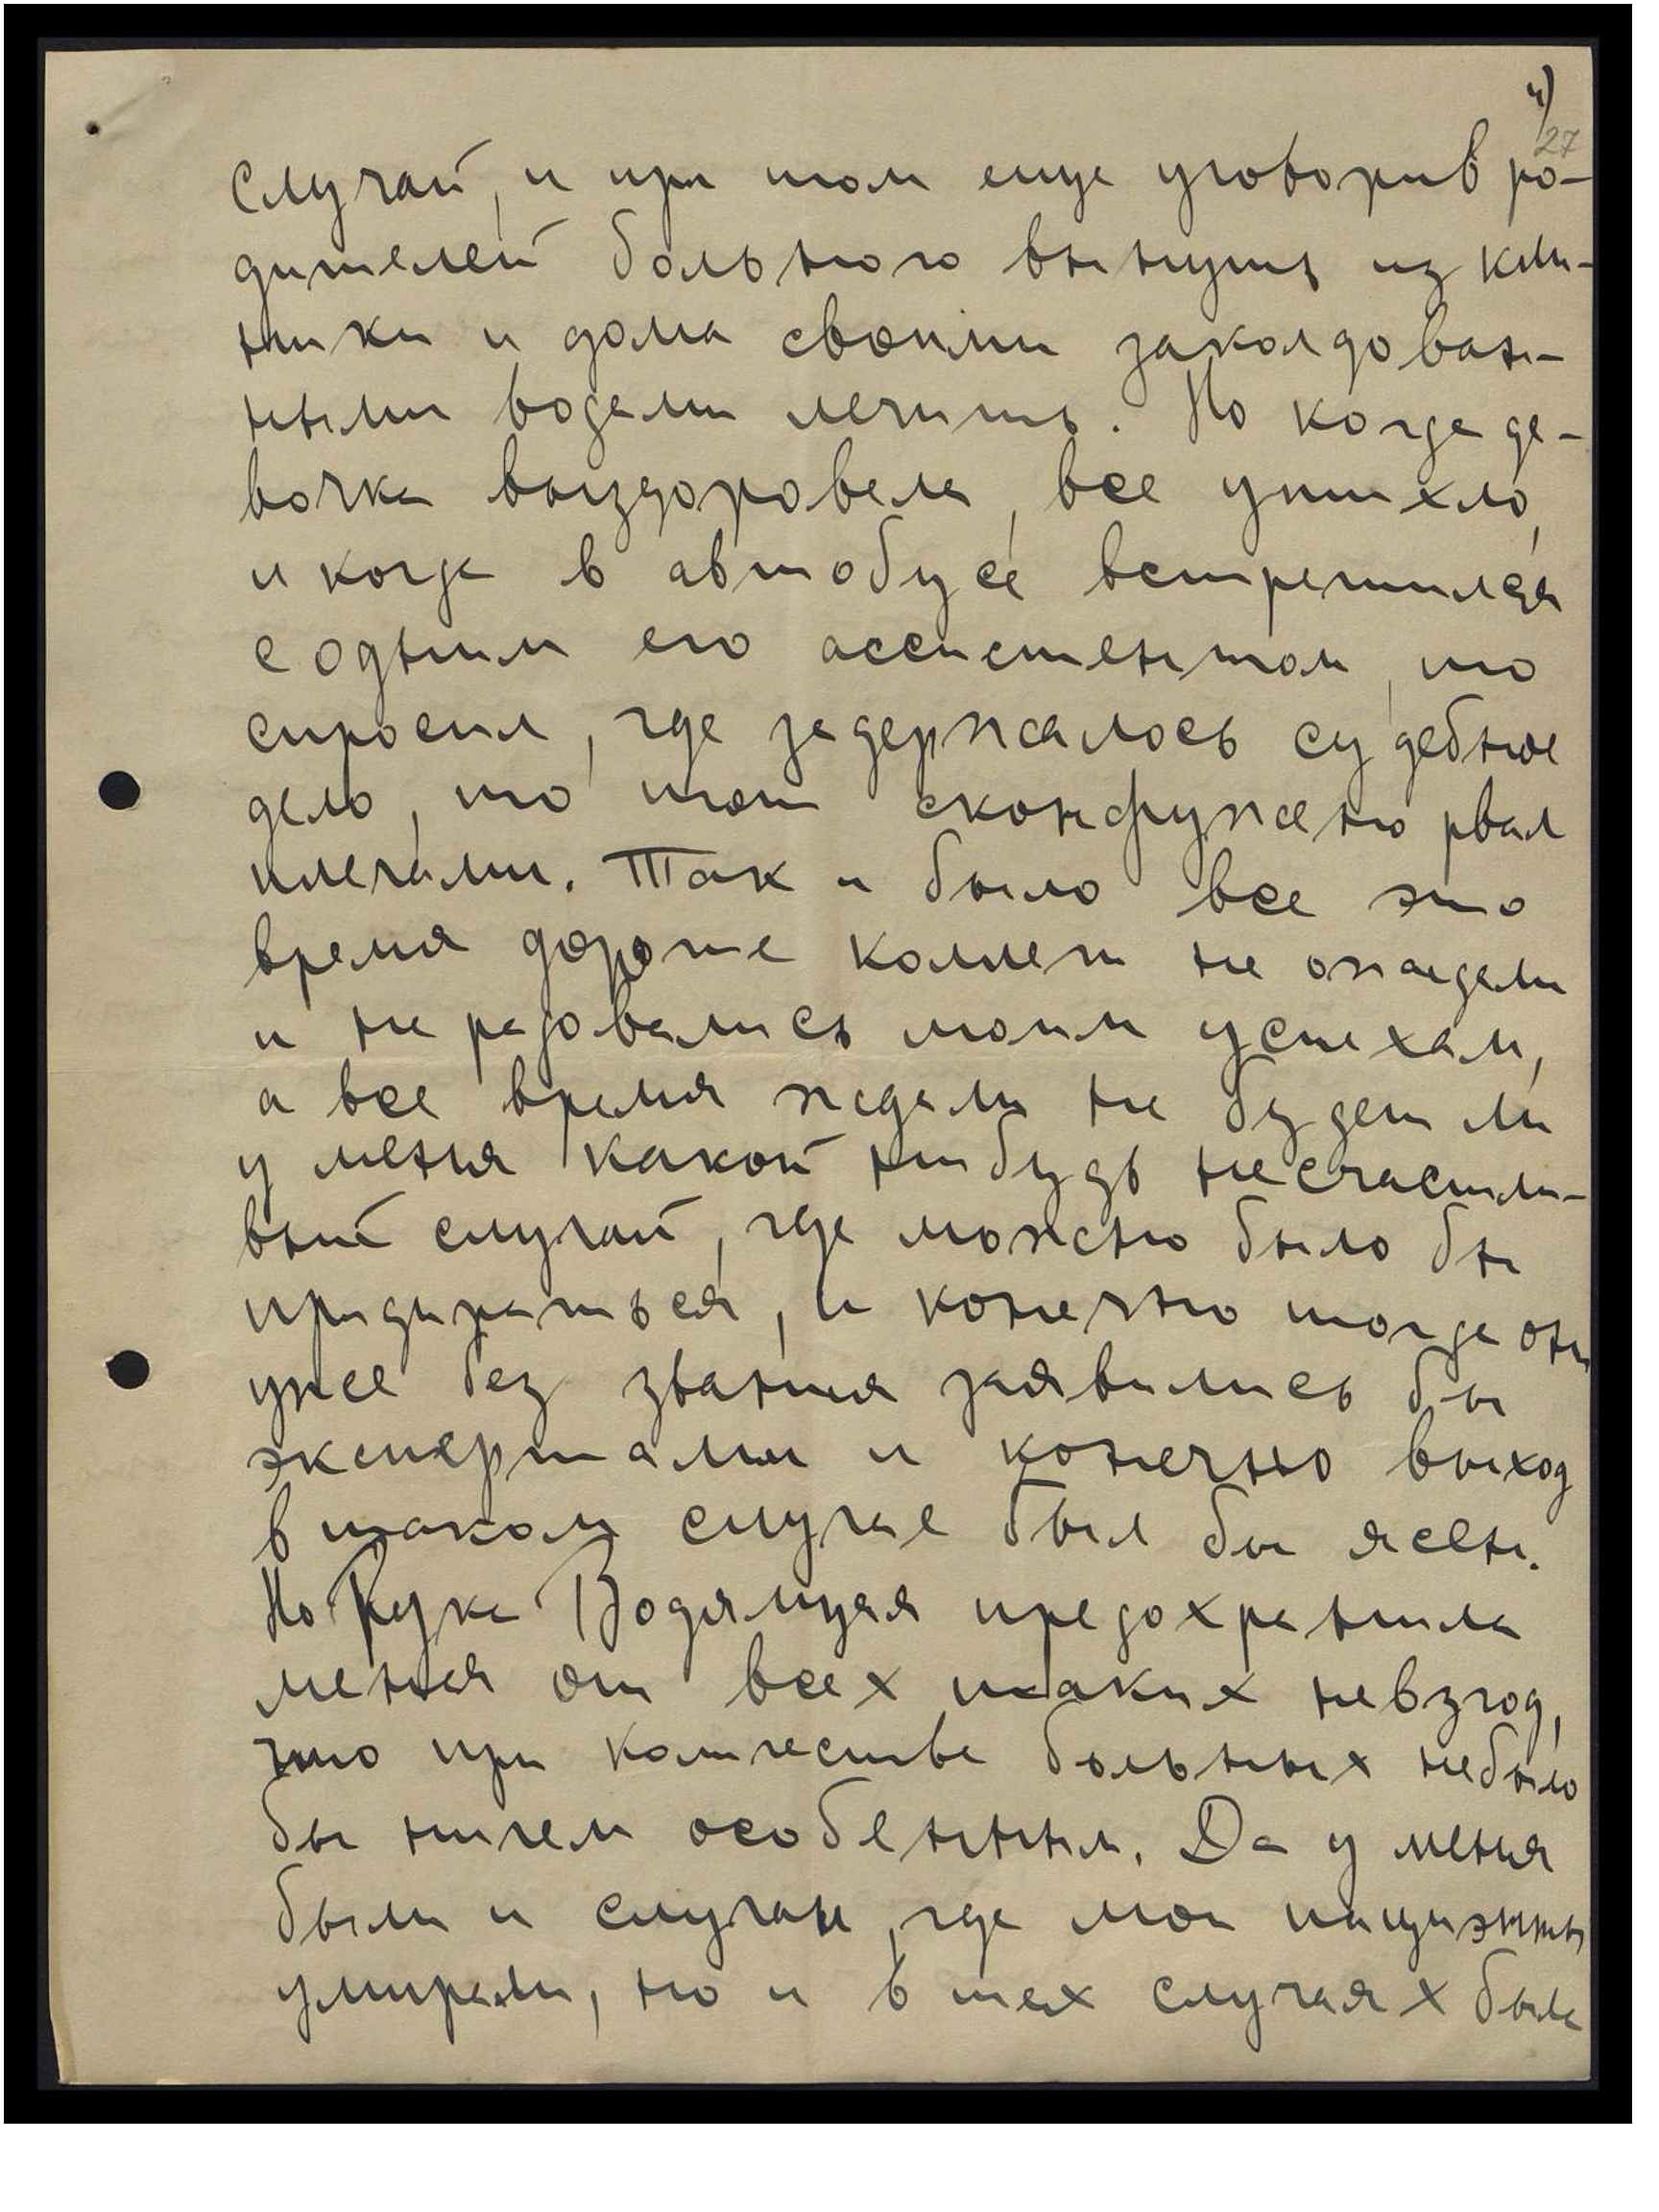 4)
27
случай, и при том еще уговорив ро-
дителей больного вынуть из кли-
ники и дома своими заколдован-
ными водами лечить. Но когда де-
вочка выздоровела, все утихло,
и когда в автобусе встретился
с одним его ассистентом, то
спросил, где задержалось судебное
дело, то тот сконфужено рвал
плечами. Так и было все это
время дороже коллеги не ожидали
и не радовались моим успехам,
а все время ждали не будет ли
у меня какой нибудь несчастли-
вый случай, где можно было бы
придираться, и конечно тогда они
уже без звания заявились бы
экспертами и конечно выход
в таком случае был бы ясен.
Но Рука Водящая предохранила
меня от всех таких невзгод,
что при количестве больных небыло
бы ничем особенным. Да у меня
были и случаи, где мои пациэнты
умирали, но и в тех случаях была